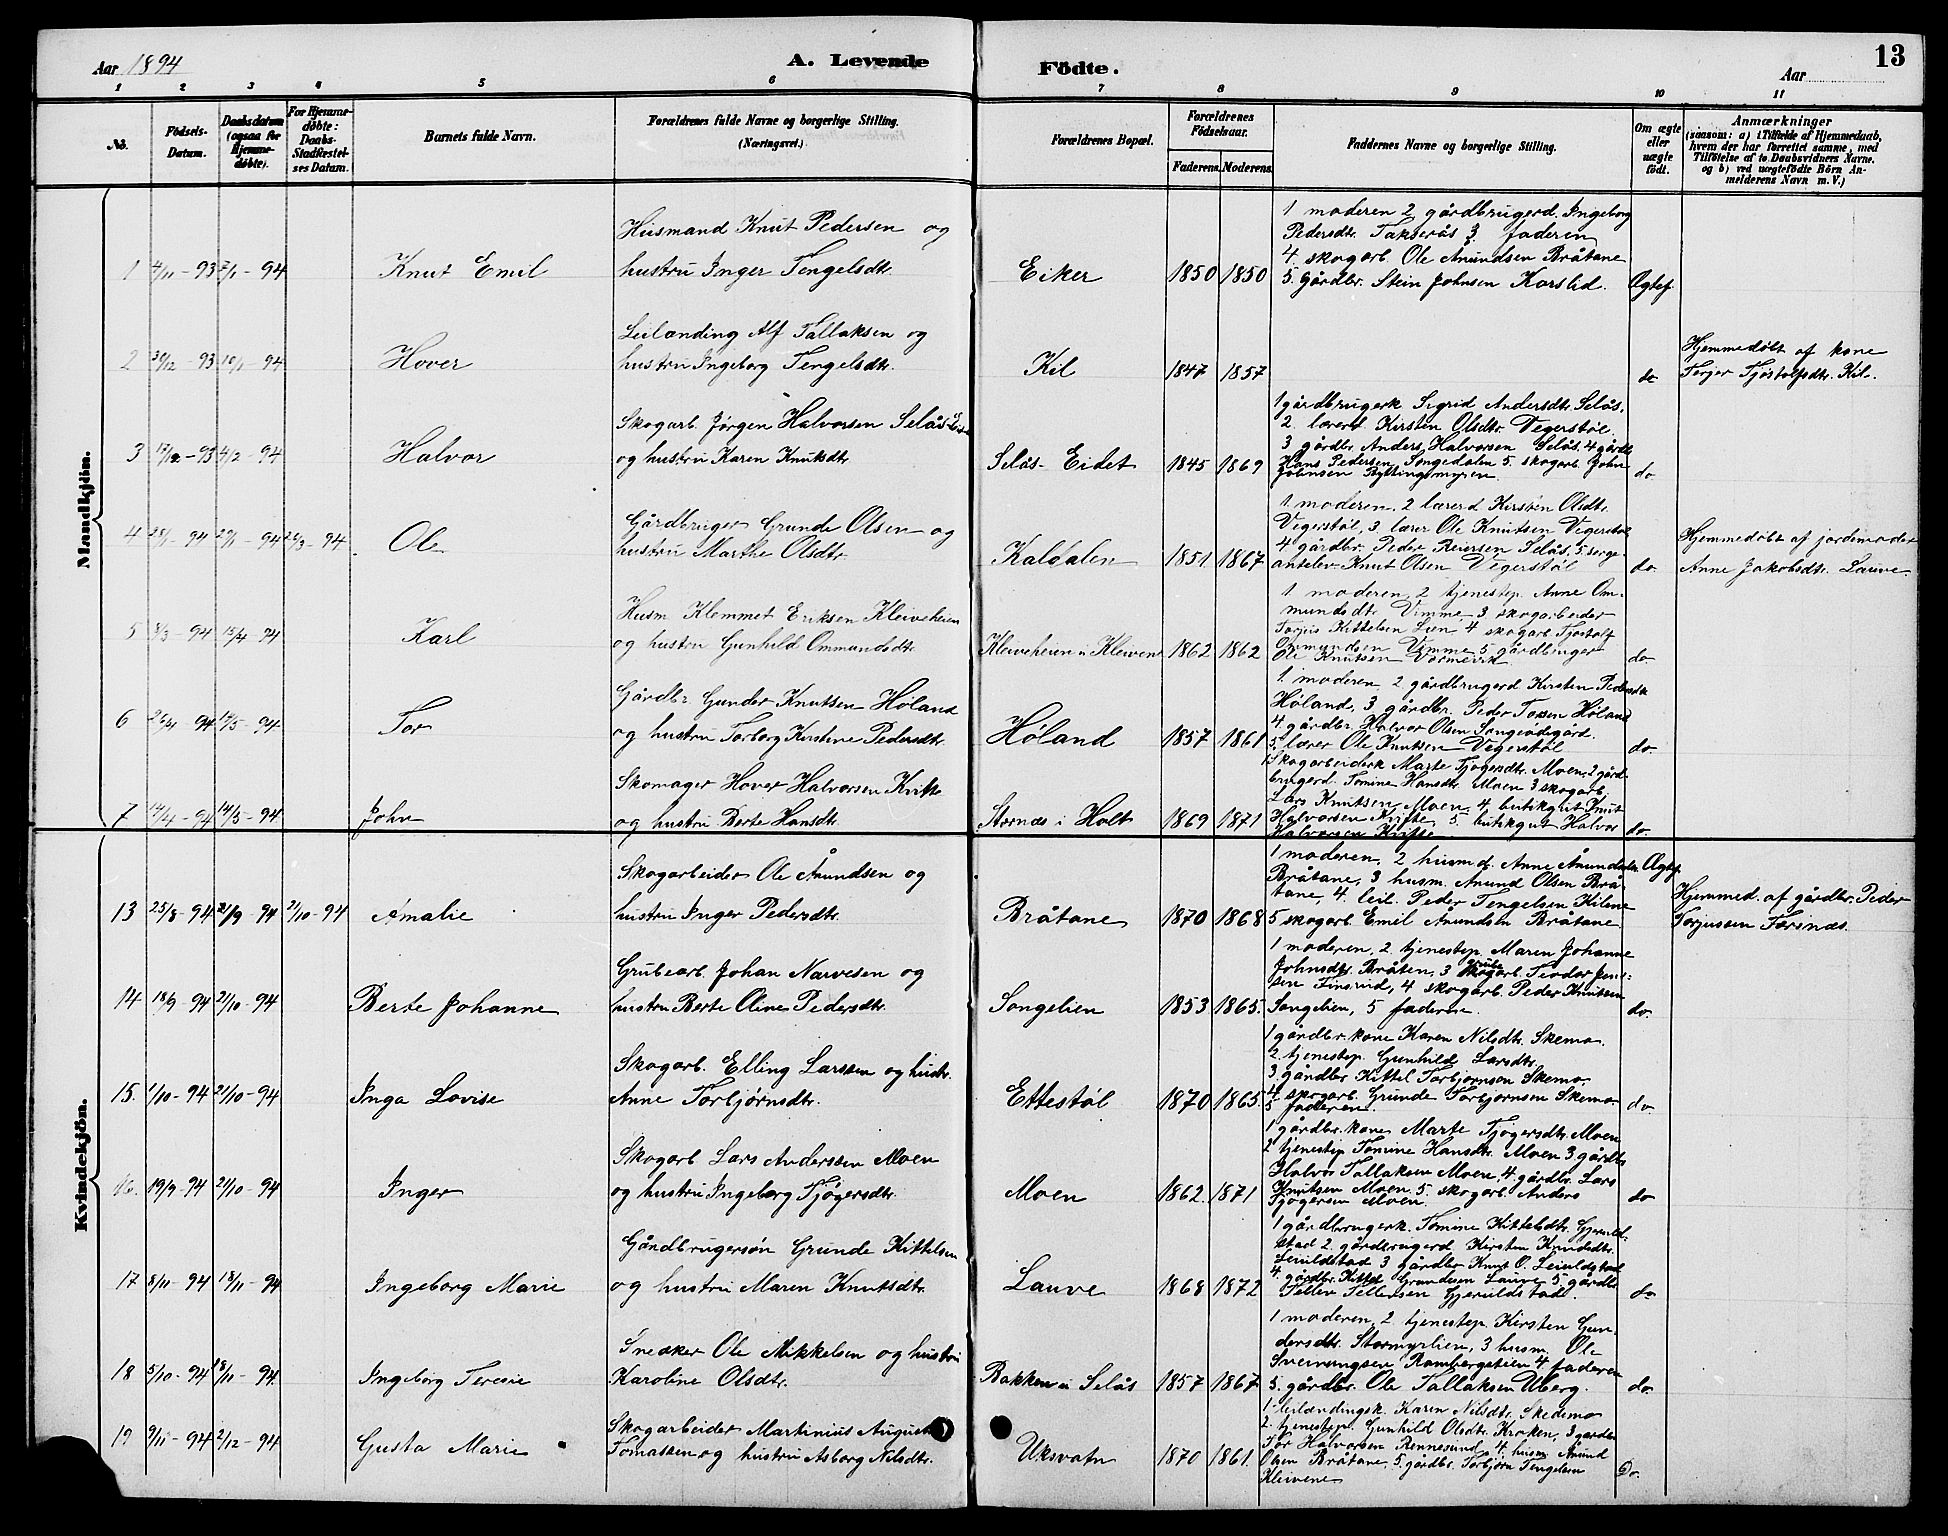 Aar 1894
A. Levende Födte.
Aar
13
1 2 3 4 5 6 7 8 9 10 11
No.
Födsels-Datum.
Daabsdatum (ogsaa for Hjemmedöbte).
For Hjemmedöbte: Daabs-Stadfæstelses Datum.
Barnets fulde Navn.
Forældrenes fulde Navne og borgerlige Stilling. (Næringsvei.)
Forældrenes Bopæl.
Forældrenes Födselsaar.
Faderens. Moderens.
Faddernes Navne og borgerlige Stilling.
Om ægte eller uægte födt.
Anmærkninger
(saasom: a) i Tilfælde af Hjemmedaab, hvem der har forrettet samme, med Tilföielse af to Daabsvidners Navne, og b) ved uægtefödte Börn Anmelderens Navn m. V.)
Mandkjön.
1 4/11-93 7/1-94 Knut Emil
Husmand Knut Pedersen og
hustru Inger Tengelsdtr.
Eiker 1850 1850
1 moderen 2 gårdbrugerd. Ingeborg
Pedersdtr. Takserås 3. faderen
4. skogarb. Ole Anundsen Bråtane
5. Gårdbr. Stein Johnsen Korslid.
Ægtef.
2 30/12-93 10/1-94 Hover
Leilænding Alf Tallaksen og
hustru Ingeborg Tengelsdtr.
Kil 1847 1857
do
Hjemmedøbt af kone
Torjer Tjøstolfsdtr. Kil.
3 17/12-93 4/2-94 Halvor
Skogarb. Jørgen Halvorsen Selås-
og hustru Karen Knutsdtr
Selås-Eidet 1845 1869
1 gårdbrugerk Sigrid Andersdtr. Selås.
2. lærerd Kirsten Olsdtr. Vegerstøl.
3 gårdbr. Anders Halvorsen Selås. 4 gårdb.
Hans Pedersen Songedalen 5. skogarb John
Johnsen Ryttingsmyren.
do.
4 28/1-94 29/1-94 26/3-94 Ole
Gårdbruger Grunde Olsen og
hustru Marthe Olsdtr.
Kaldalen 1851. 1867
1. moderen, 2 lærerd Kirsten Olsdtr.
Vegerstøl, 3 lærer Ole Knutsen Vegerstøl
4 gårdbr. Peder Reiersen Selås, 5. serge-
antelev Knut Olsen Vegerstøl
do.
Hjemmedøbt af jordemoder
Anne Jakobsdtr. Lauve.
5 8/3-94 15/4-94 Karl
Husm Klemmet Eriksen Kleiveheien
og hustru Gunhild Ommundsdtr.
Kleiveheien u Kleivene 1862 1862
1 moderen, 2 tjenestep. Anne Om-
mundsdtr. Vimme 3 skogarbeider
Torjus Kittelsen Lien 4 skogarb. Tjøstolf
Ommundsen Vimme 5 gårdbruger
Ole Knutsen Vormevik
do
6 26/4-94 14/5-94 Tor
Gårdbr Gunder Knutsen Høland
og hustru Torborg Kirstine Pedersdtr.
Høland 1857 1861
1. moderen 2 gårdbrugerd Kirsten Pedersdtr
Høland, 3 gårdbr. Peder Torsen Høland
4 gårdbr. Halvor Olsen Songeødegård.
5. lærer Ole Knutsen Vegerstøl
do.
7 14/4-94 14/5-94 John
Skomager Hover Halvorsen Kvifte
og hustru Berte Hansdtr.
Stornæs i Holt 1869 1871
1 Skogarbeiderk Marte Tjøgersdtr. Moen, 2 gård-
brugerd. Tomine Hansdtr. Moen 3 skogarb.
Lars Knutsen Moen, 4 butikgut Knut
Halvorsen Kvifte, 5. butikgut Halvor
Halvorsen Kvifte
do.
Kvindekjön.
13 25/8-94 21/9-94 21/10-94 Amalie
Skogarbeider Ole Anundsen og
hustru Inger Pedersdtr.
Bråtane 1870 1868
1 moderen, 2 husmd. Anne Anundsdtr.
Bråtane, 3 husm. Anund Olsen Brå-
tane, 4. leil. Peder Tengelsen Kilene
5 skogarb Emil Anundsen Bråtane
Ægtef.
Hjemmed. af gårdbr. Peder
Torjussen Forsnæs.
14 18/9-94 21/10-94 Berte Johanne
Grubearb. Johan Narvesen og
hustru Berte Oline Pedersdtr.
Songelien 1853 1865.
1 moderen, 2. tjenestep. Maren Johanne
Johnsdtr. Bråten, 3 grubearb. Teodor Jen-
sen Finsrud, 4 skogarb. Peder Knutsen
Songelien, 5 faderen.
do.
15. 1/10-94 21/10-94 Inga Lovise
Skogarb. Elling Larssen og hustr.
Anne Torbjørnsdtr.
Ettestøl 1870 1865.
1 gårdbr.kone Karen Nilsdtr. Skemo.
2. tjenestep. Gunhild Larsdtr.
3. gårdbr Kittel Torbjørnsen Skemo.
4. skogarb. Grunde Torbjørnsen Skemo.
5 faderen.
do
16. 19/9-94 21/10-94 Inger
Skogarb Lars Anderssen Moen
og hustru Ingeborg Tjøgersdtr.
Moen 1862 1871
1 gårdbr.kone Marte Tjøgersdtr. Moen
2 tjenestep. Tomine Hansdtr. Moen 3. gårdbr
Halvor Tallaksen Moen, 4. gårdbr. Lars
Knutsen Moen, 5. skogarb. Anders
Tjøgersen Moen.
do
17 8/11-94 18/11-94 Ingeborg Marie
Gårdbrugersøn Grunde Kittelsen
og hustru Maren Knutsdtr.
Lauve 1868 1872
1 gårdbrugerk. Tomine Kittelsdtr. Gjeruld-
stad 2. gårdbrugerd Kirsten Knudsdtr.
Leiulstad 3 gårdbr Knut O. Leiulstad
4. gårdbr. Kittel Grundesen Lauve 5. gårdbr.
Tellev Tellefsen Gjeruldstad.
do
18 5/10-94 18/11-94. Ingeborg Teresie
Snedker Ole Mikkelsen og hustru
Karoline Olsdtr.
Bakken u Selås 1857 1867
1 moderen, 2 tjenestep. Kirsten Gun-
dersdtr. Stormyrlien, 3 husm. Ole
Sveinungsen Rambergstien 4 faderen
5. gårdbr. Ole Tallaksen Uberg.
do.
19 9/11-94 2/12-94 Gusta Marie
Skogarbeider Martinius August
Tomassen og hustru Asborg Nilsdtr.
Uksvatn 1870 1861.
1. leilændingsk. Karen Nilsdtr. Skedemo
2. tjenestep. Gunhild Olsdtr. Kroken, 3 gårdbr
Tor Halvorsen Rennesund 4. husm Anund
Olsen Bråtane, 5. gårdbr. Torbjørn Tengelsen
Kleivene
Do.